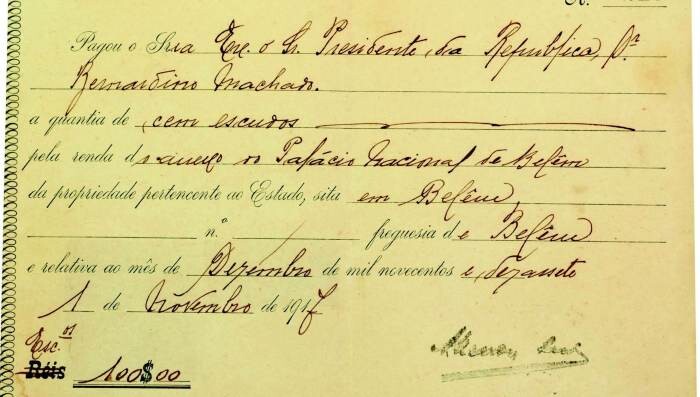 Pagou o Sr. a Exc. o Sr. Presidente da Republica, Dr.
Bernardino Machado.
a quantia de cem escudos
pela renda do anexo no Palácio Nacional de Belém
da propriedade pertencente ao Estado, sita em Belém,
n.º freguesia de Belém
e relativa ao mês de Dezembro de mil novecentos e dezassete
1 de Novembro de 1917
Esc.os
Réis 100$00